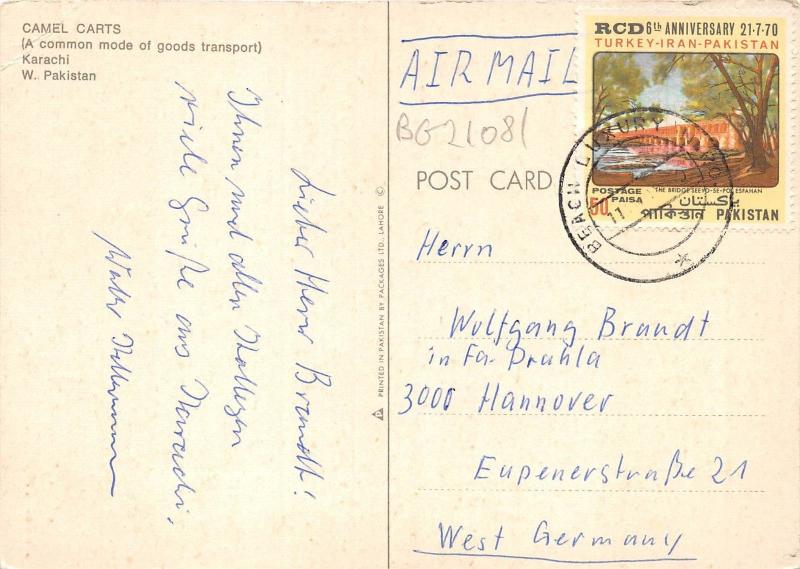 CAMEL CARTS
(A common mode of goods transport)
Karachi
W. Pakistan
Lieber Herr Brandt!
Ihnen und allen Kollegen
viele Grüße aus Karachi,
PRINTED IN PAKISTAN BY PACKAGES LTD., LAHORE ©
AIR MAIL
BG21081
POST CARD
RCD 6th ANNIVERSARY 21·7·70
TURKEY-IRAN-PAKISTAN
THE BRIDGE SEEYO-SE-POL ESFAHAN
POSTAGE
50 PAISA
پاکستان
পাকিস্তান PAKISTAN
BEACH LUXURY
11
Herrn
Wolfgang Brandt
in Fa. Prahla
3000 Hannover
Eupenerstraße 21
West Germany